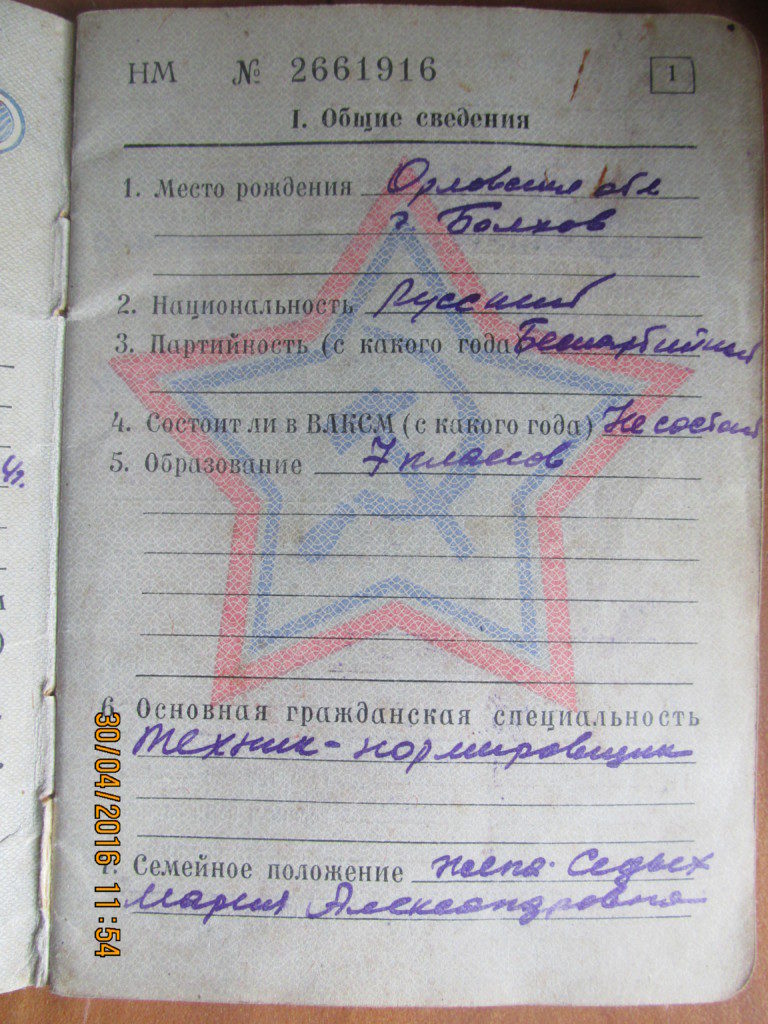 НМ № 2661916
1
I. Общие сведения
1. Место рождения Орловская обл
г Болхов
2. Национальность Русский
3. Партийность (с какого года Беспартийный
4. Состоит ли в ВЛКСМ (с какого года) Не состоит
5. Образование 7 классов
6. Основная гражданская специальность
Техник-нормировщик
7. Семейное положение жена. Седых
Мария Александровна
30/04/2016 11:54